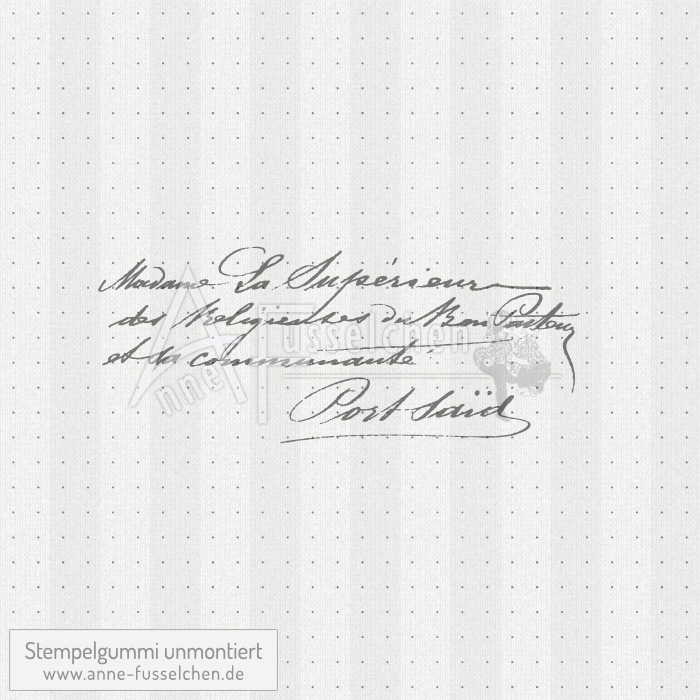 Madame La Supérieure
des Religieuses du Bon Pasteur
et la communauté
Port Saïd
Anne Fusselchen
Stempelgummi unmontiert
www.anne-fusselchen.de